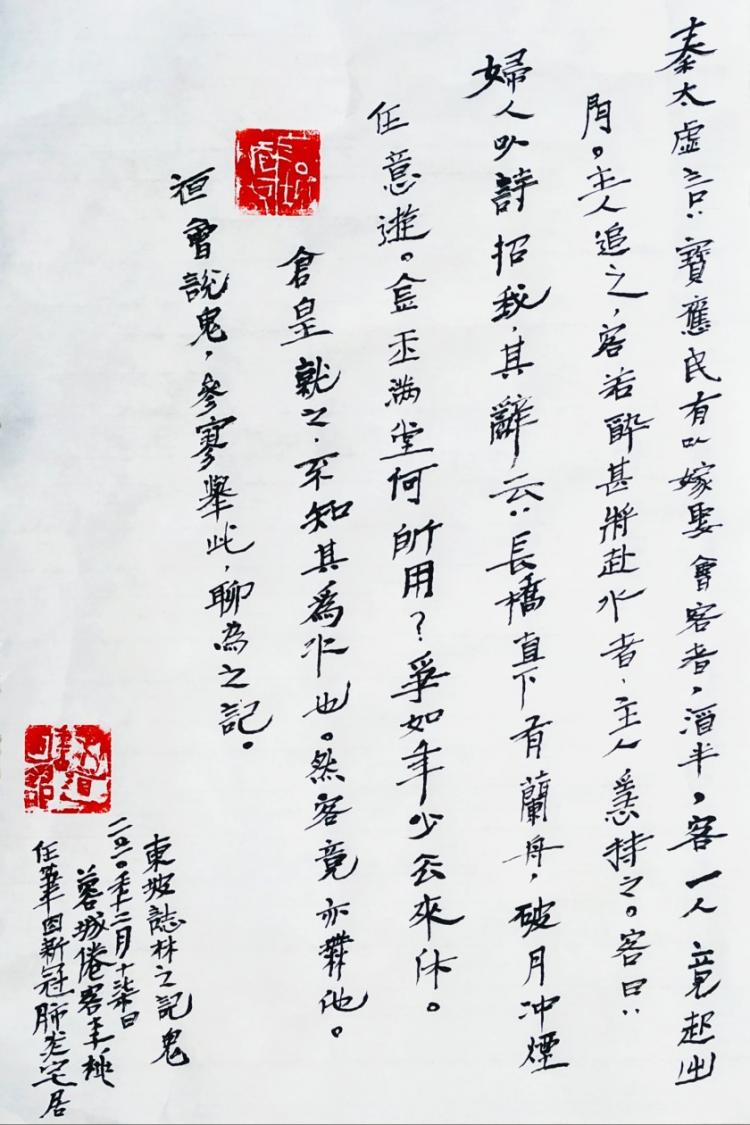 秦太虛言：寶應民有以嫁娶會客者，酒半，客一人竟起出
門。主人追之，客若醉甚將赴水者，主人急持之。客曰：
婦人以詩招我，其辭云：長橋直下有蘭舟，破月沖煙
任意遊。金玉滿堂何所用？爭如年少去來休。
倉皇就之，不知其為水也。然客竟亦無他。
夜會說鬼，參寥舉此，聊為之記。
東坡誌林之記鬼
二〇二〇年二月十柒日
蓉城倦客李
任筆因新冠肺炎宅居